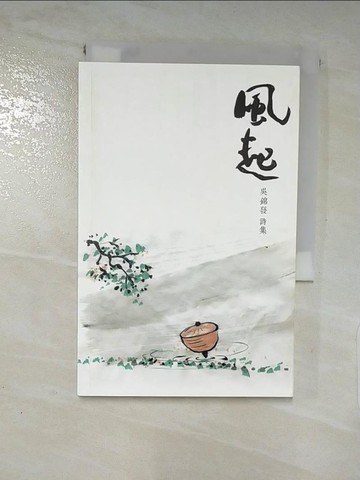 風起
吳錦發 詩集